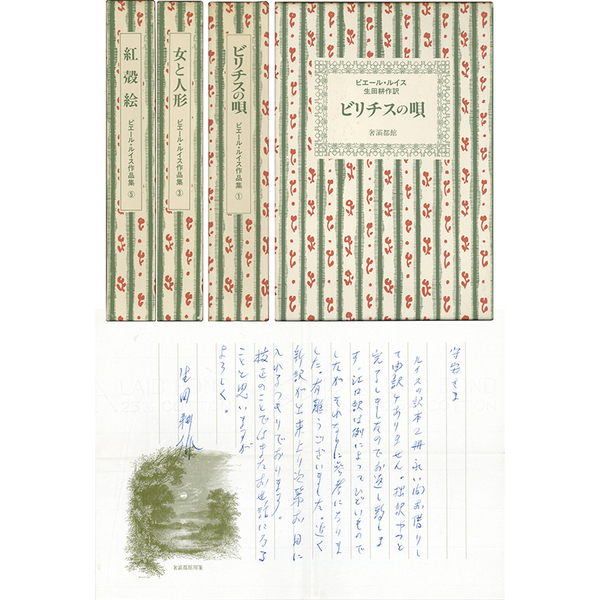 ビリチスの唄
ピエール・ルイス作品集 ①
女と人形
ピエール・ルイス作品集 ③
紅殻絵
ピエール・ルイス作品集 ⑤
ピエール・ルイス
生田耕作訳
ビリチスの唄
奢灞都館
守安さま
ルイスの訳本2冊永い間お借りし
て申訳ありません。拙訳やっと
完了しましたのでお返し致しま
す。江口訳は例によってひどいもので
したが それなりに参考になりま
した。有難うございました。近く
新訳が出来上り次第お目に
入れるつもりでおります。
校正のことではまたお世話になる
ことと思いますが
よろしく。
生田耕作
奢灞都館用箋